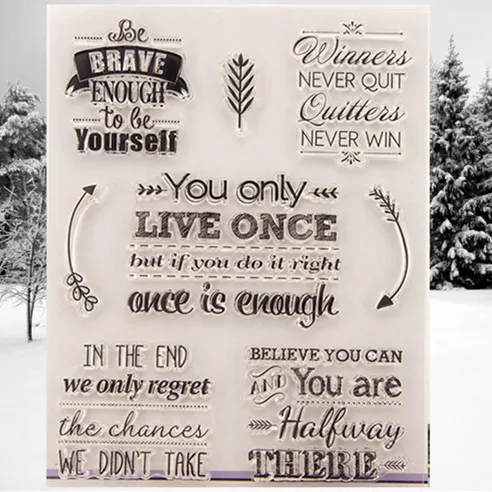 Be
BRAVE
ENOUGH
to be
Yourself
Winners
NEVER QUIT
Quitters
NEVER WIN
You only
LIVE ONCE
but if you do it right
once is enough
IN THE END
we only regret
the chances
WE DIDN'T TAKE
BELIEVE YOU CAN
AND You are
Halfway
THERE